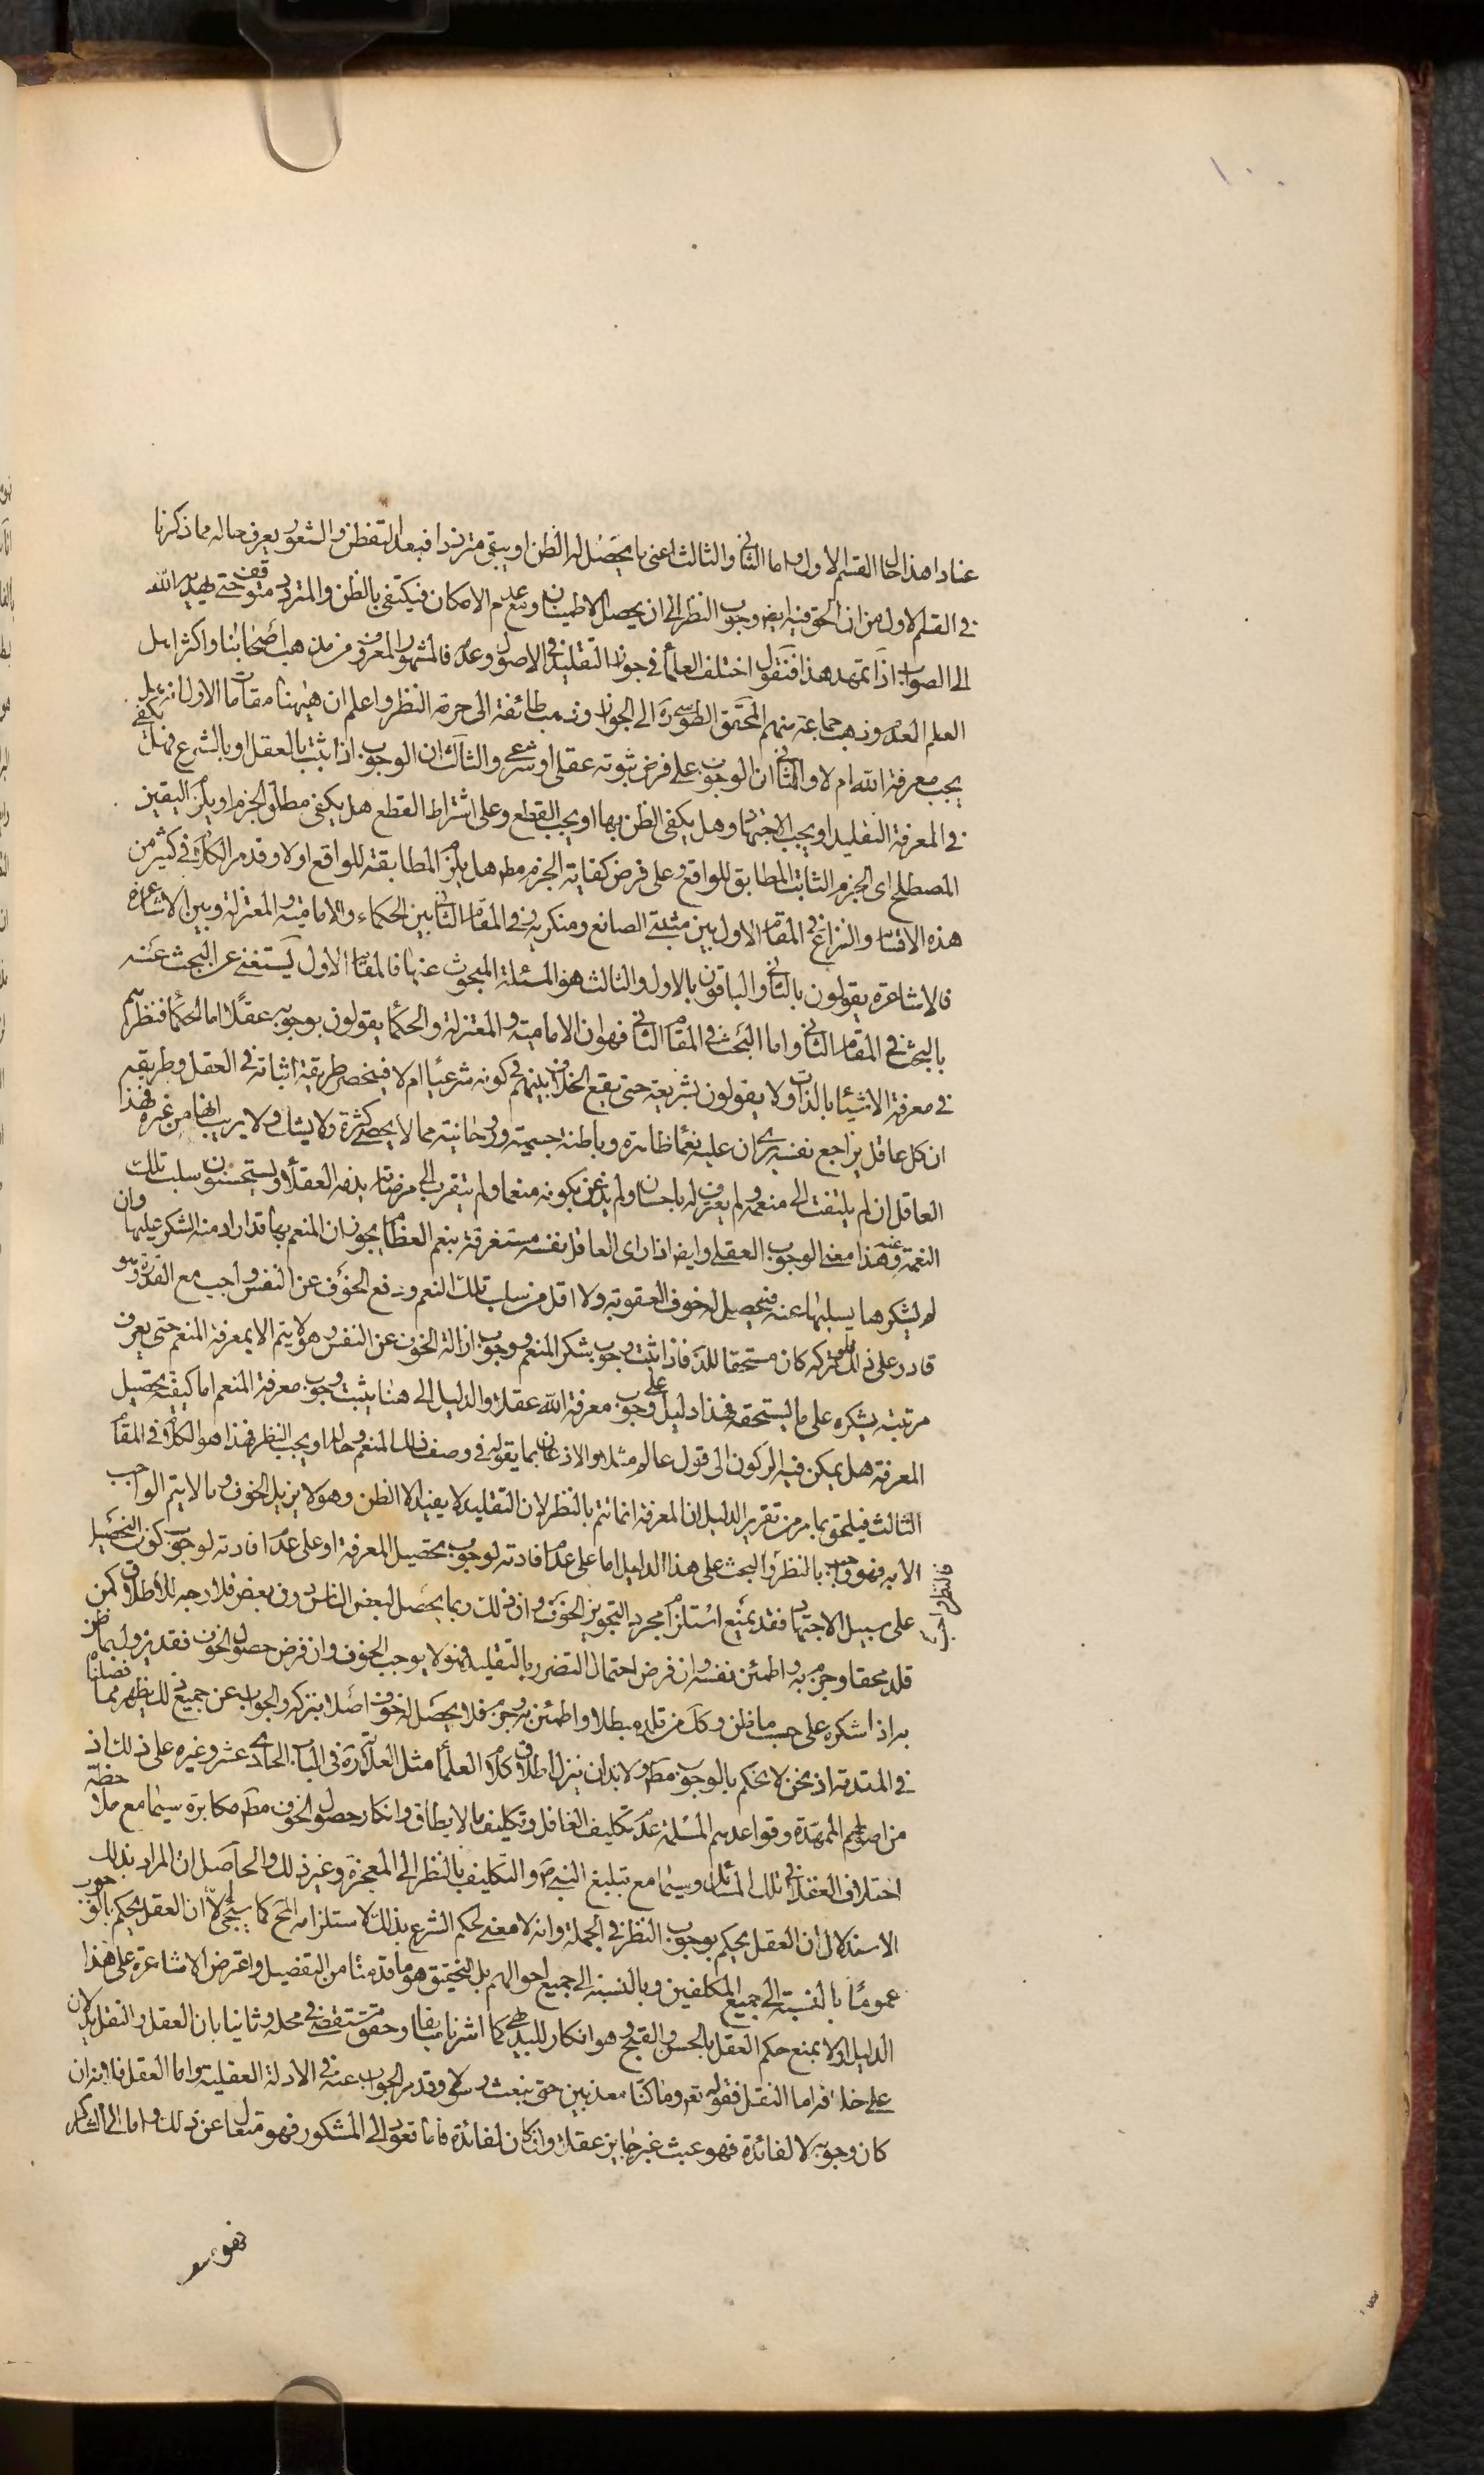 ١٠٠
عنادا هذا حال القسم الاول واما الثانى والثالث اعنى ما يحصل له الظن او يبقى مترددا فبعد التفطن والشعور يعرف حاله مما ذكرنا
فى القسم الاول من ان الحق فيه ايضا وجوب النظر الى ان يحصل الاطمينان ومع عدم الامكان فيكتفى بالظن والمتردد متوقف حتى يهديه الله
الى الصواب اذا تمهد هذا فنقول اختلف العلماء فى جواز التقليد فى الاصول وعدمه فالمشهور المعروف من مذهب اصحابنا واكثر اهل
العلم العدم وذهب جماعة منهم المحقق الطوسى ره الى الجواز وذهب طائفة الى حرمة النظر واعلم ان هيهنا مقامات الاول انه هل
يجب معرفة الله ام لا والثانى ان الوجوب على فرض ثبوته عقلى او شرعى والثالث ان الوجوب اذا ثبت بالعقل او بالشرع فهل يكفى
فى المعرفة التقليد او يجب الاجتهاد وهل يكفى الظن بها او يجب القطع وعلى اشتراط القطع هل يكفى مطلق الجزم او يلزم اليقين
المصطلح اى الجزم الثابت المطابق للواقع وعلى فرض كفاية الجزم مط هل يلزم المطابقة للواقع او لا وقد مر الكلام فى كثير من
هذه الاقسام والنزاع فى المقام الاول بين مثبتى الصانع ومنكريه وفى المقام الثانى بين الحكماء والامامية والمعتزلة وبين الاشاعرة
فالاشاعرة يقولون بالثانى والباقون بالاول والثالث هو المسئلة المبحوث عنها فالمقام الاول يستغنى عن البحث عنه
بالبحث فى المقام الثانى واما البحث فى المقام الثانى فهو ان الامامية والمعتزلة والحكماء يقولون بوجوبه عقلا اما الحكماء فنظرهم
فى معرفة الاشياء بالذات ولا يقولون بشريعة حتى يقع الخلاف بينهم فى كونه شرعيا ام لا فينحصر طريقة اثباته فى العقل وطريقه
ان كل عاقل يراجع نفسه يرى ان عليه نعما ظاهرة وباطنة جسمية وروحانية مما لا يحصى كثرة ولا يشك ولا يريب انها من غيره فهذا
العاقل ان لم يلتفت الى منعمه ولم يعترف له باحسان ولم يذعن بكونه منعما ولم يتقرب الى مرضاته يذمه العقلاء ويستحسنون سلب تلك
النعمة عنه وهذا معنى الوجوب العقلى وايضا اذا راى العاقل نفسه مستغرقة بنعم العظام يجوز ان المنعم بها قد اراد منه الشكر عليها وان
لم يشكرها يسلبها عنه فيحصل له خوف العقوبة ولا اقل من سلب تلك النعم ودفع الخوف عن النفس واجب مع القدرة وهو
قادر على ذلك فلو تركه كان مستحقا للذم فاذا ثبت وجوب شكر المنعم ووجوب ازالة الخوف عن النفس وهو لا يتم الا بمعرفة المنعم حتى يعرف
مرتبته يشكره على ما يستحقه فهذا دليل على وجوب معرفة الله عقلا والدليل الى هنا يثبت وجوب معرفة المنعم اما كيفية تحصيل
المعرفة هل يمكن فيه الركون الى قول عالم مثلا والاذعان بما يقوله فى وصف ذلك المنعم وحاله او يجب النظر فهذا هو الكلام فى المقام
الثالث فيلحق بما مر من تقرير الدليل ان المعرفة انما تتم بالنظر لان التقليد لا يفيد الا الظن وهو لا يزيل الخوف وما لا يتم الواجب
الا به فهو واجب بالنظر والبحث على هذا الدليل اما على عدم افادته لوجوب تحصيل المعرفة او على عدم افادته لوجوب كون التحصيل
فالنظر واجب
على سبيل الاجتهاد فقد يمنع استلزام مجرد التجويز الخوف وان ذلك ربما يحصل لبعض الناس دون بعض فلا وجه للاطلاق كمن
قلد محقا وجزم به واطمئن نفسه وان فرض احتمال التضرر بالتقليد فهو لا يوجب الخوف وان فرض حصول الخوف فقد يزول بما ظن
به اذا شكره على حسب ما ظن وكل من قلد مبطلا واطمئن به وجزم فلا يحصل له خوف اصلا بتركه والجواب عن جميع ذلك يظهر مما فصلناه
فى المقدمة اذ نحن لا نحكم بالوجوب مط ولا بد ان ينزل اطلاق كلام العلماء مثل العلامة ره فى الباب الحادى عشر وغيره على ذلك اذ
من اصولهم الممهدة وقواعدهم المسلمة عدم تكليف الغافل وتكليف ما لا يطاق وانكار حصول الخوف مط مكابرة سيما مع ملاحظة
اختلاف العقلاء فى تلك المسائل وسيما مع تبليغ النبى ص والتكليف بالنظر الى المعجزة وغير ذلك والحاصل ان المراد بذلك
الاستدلال ان العقل يحكم بوجوب النظر فى الجملة وانه لا معنى لحكم الشرع بذلك لاستلزامه المح كما سيجئ لا ان العقل يحكم بالوجوب
عموما بالنسبة الى جميع المكلفين وبالنسبة الى جميع احوالهم بل التحقيق هو ما قدمنا من التفصيل واعترض الاشاعرة على هذا
الدليل اولا بمنع حكم العقل بالحسن والقبح وهو انكار للبديهى كما اشرنا سابقا وحقق مستقصى فى محله وثانيا بان العقل والنقل يدلان
على خلافه اما النقل فقوله تع وما كنا معذبين حتى نبعث رسولا وقد مر الجواب عنه فى الادلة العقلية واما العقل فلانه ان
كان وجوبه لا لفائدة فهو عبث غير جايز عقلا وان كان لفائدة فاما تعود الى المشكور فهو متعال عن ذلك واما الى الشاكر
فهو